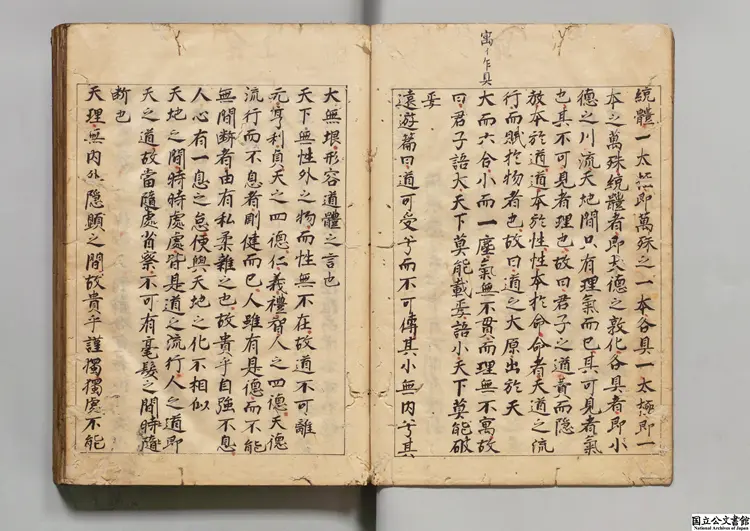 寓イ乍具
統體一太極即萬殊之一本各具一太極即一
本之萬殊統體者即大德之敦化各具者即小
德之川流天地間只有理氣而已其可見者氣
也其不可見者理也故曰君子之道費而隱
放本於道道本於性性本於命命者天道之流
行而賦於物者也故曰道之大原出於天
大而六合小而一塵氣無不貫而理無不寓故
曰君子語大天下莫能載焉語小天下莫能破
焉
遠遊篇曰道可受兮而不可傳其小無内兮其
大無垠形容道體之言也
天下無性外之物而性無不在故道不可離
元亨利貞天之四德仁義禮智人之四德天德
流行而不息者剛健而已人雖有是德而不能
無間斷者由有私柔雜之也故貴乎自強不息
人心有一息之怠便與天地之化不相似
天地之間時時處處皆是道之流行人之道即
天之道故當隨處省察不可有毫髮之間時隨
断也
天理無内外隱顯之間故貴乎謹獨獨處不能
国立公文書館
National Archives of Japan